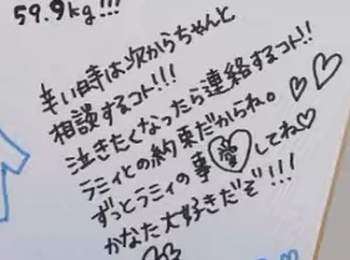 59.9kg!!!
辛い時は次からちゃんと
相談するコト!!!
泣きたくなったら連絡するコト!!
ラミィとの約束だからね。♡♡
ずっとラミィの事愛してね♡
かなた大好きだぞ!!!